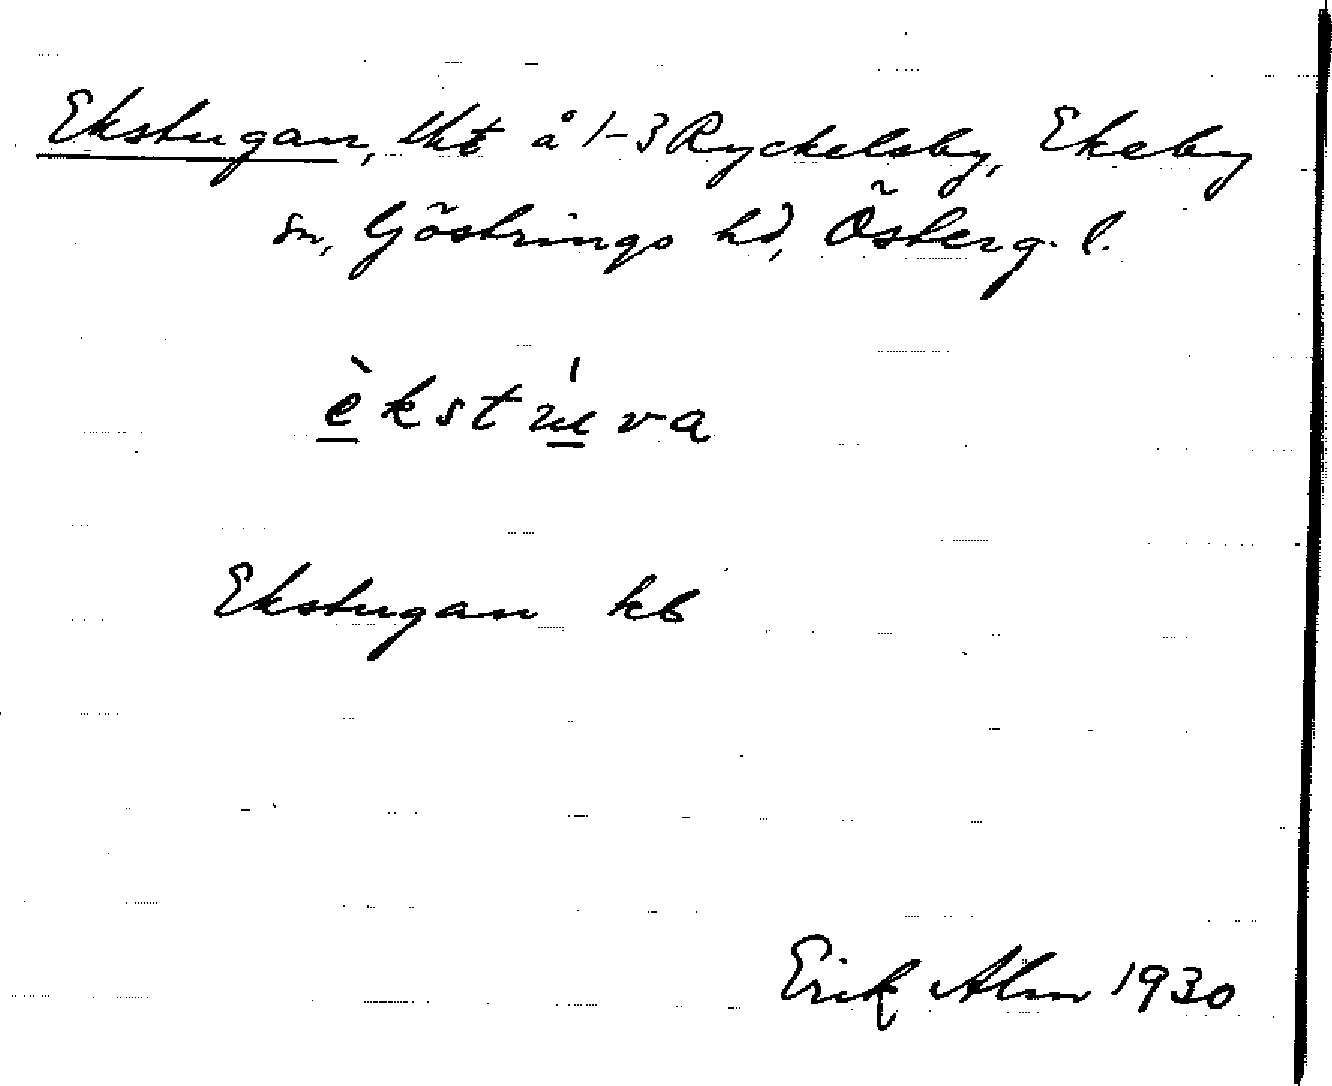 Ekstugan, lht å 1-3 Ryckelsby, Ekeby
sn, Göstrings hd, Österg. l.
èkstúva
Ekstugan kb
Erik Alm 1930